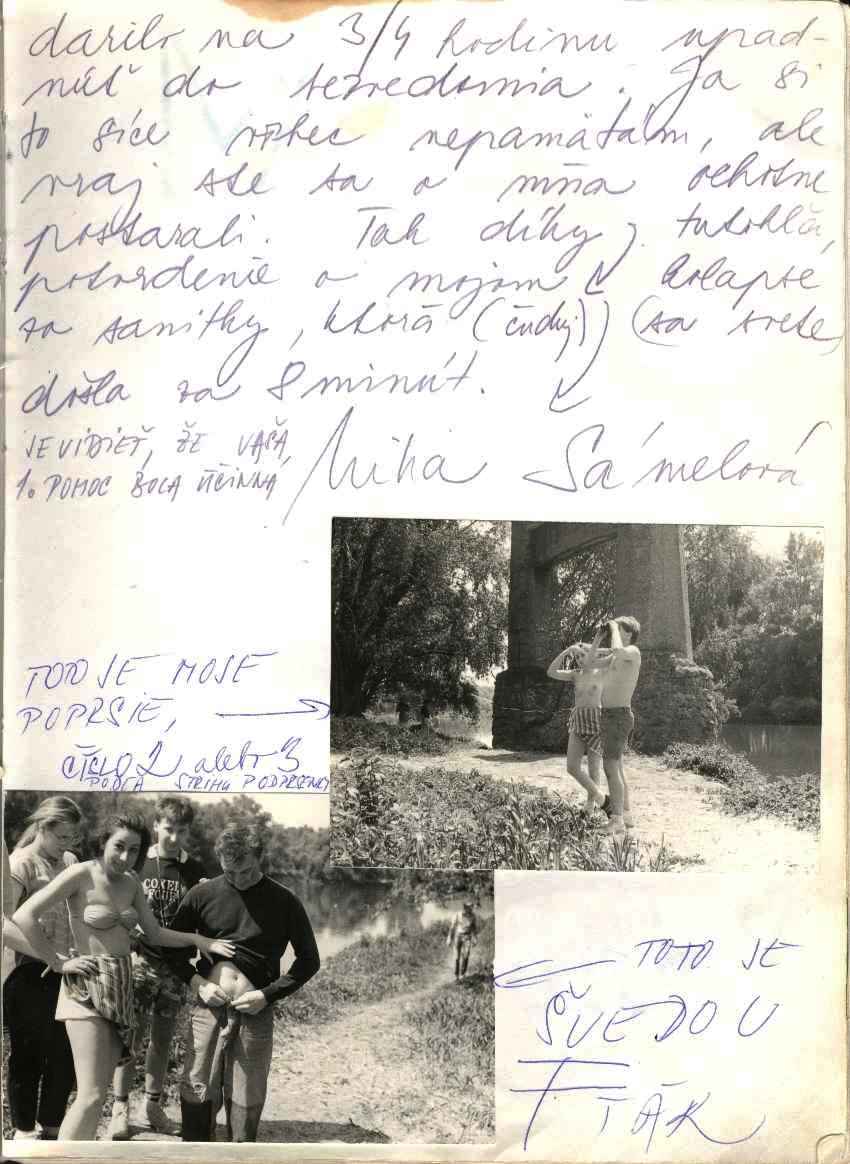 darilo na 3/4 hodinu upad-
núť do bezvedomia. Ja si
to síce vôbec nepamätám, ale
vraj ste sa o mňa ochotne
postarali. Tak díky
potvrdenie o mojom kolapse
zo sanitky, ktorá (čuduj) (sa svete)
došla za 8 minút.
JE VIDIEŤ, ŽE VAŠA
1. POMOC BOLA ÚČINNÁ
Sámelová
TOTO JE MOJE
POPRSIE,
ČÍSLO 2 alebo 3
PODĽA STRIHU PODPRSENKY
TOTO JE
ŠVEDOV
FŤÁK